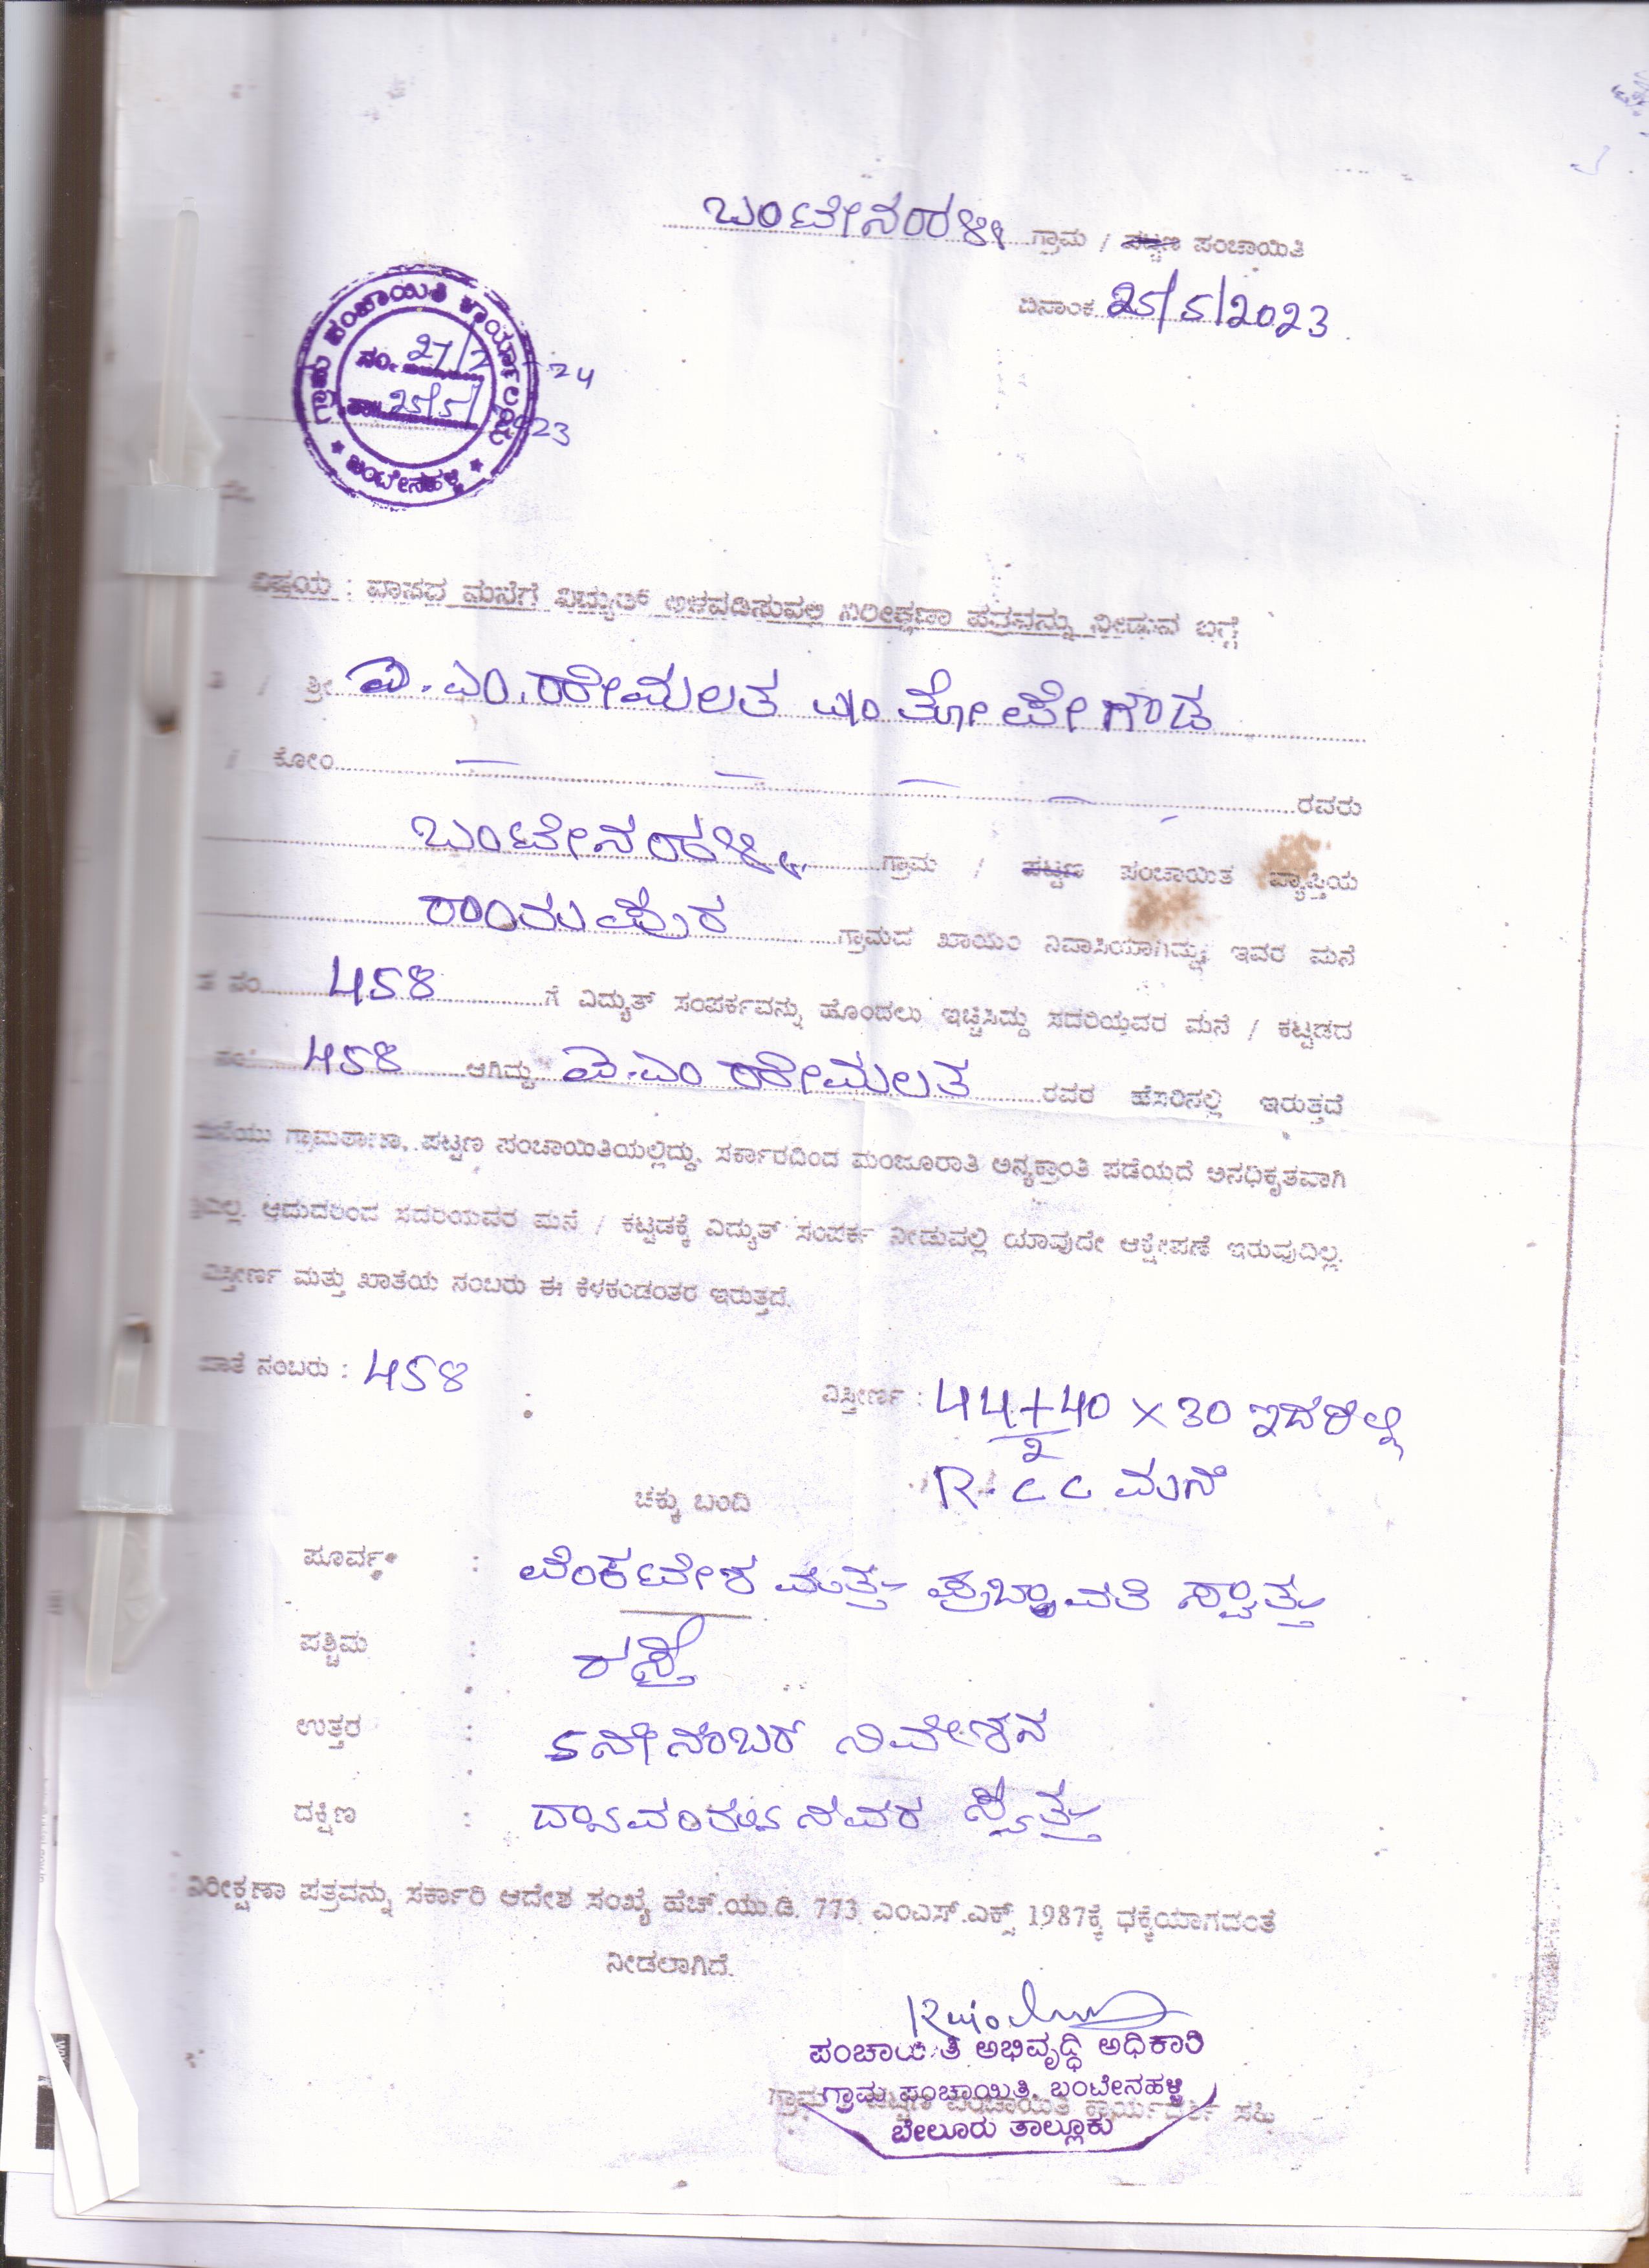 ಬಂಟೇನಹಳ್ಳಿ ಗ್ರಾಮ / ಪಟ್ಟಣ ಪಂಚಾಯಿತಿ
ದಿನಾಂಕ 25/5/2023
ಗ್ರಾಮ ಪಂಚಾಯಿತಿ ಕಾರ್ಯಾಲಯ
ನಂ. 27/2 -24
ತಾ 25/5/2023
* ಬಂಟೇನಹಳ್ಳಿ *
ವಿಷಯ : ವಾಸದ ಮನೆಗೆ ವಿದ್ಯುತ್ ಅಳವಡಿಸುವಲ್ಲಿ ನಿರೀಕ್ಷಣಾ ಪತ್ರವನ್ನು ನೀಡುವ ಬಗ್ಗೆ
/ ಶ್ರೀ ಎಂ. ಹೇಮಲತ ತೋಪೇಗೌಡ
/ ಕೋಂ ರವರು
ಬಂಟೇನಹಳ್ಳಿ ಗ್ರಾಮ / ಪಟ್ಟಣ ಪಂಚಾಯಿತ ವ್ಯಾಪ್ತಿಯ
ರಾಂಮಪುರ ಗ್ರಾಮದ ಖಾಯಂ ನಿವಾಸಿಯಾಗಿದ್ದು, ಇವರ ಮನೆ
ನಂ 458 ಗೆ ವಿದ್ಯುತ್ ಸಂಪರ್ಕವನ್ನು ಹೊಂದಲು ಇಚ್ಚಿಸಿದ್ದು ಸದರಿಯವರ ಮನೆ / ಕಟ್ಟಡದ
ನಂ 458 ಆಗಿದ್ದು ಎಂ ಹೇಮಲತ ರವರ ಹೆಸರಿನಲ್ಲಿ ಇರುತ್ತದೆ
ಮನೆಯು ಗ್ರಾಮಠಾಣಾ, ಪಟ್ಟಣ ಪಂಚಾಯಿತಿಯಲ್ಲಿದ್ದು, ಸರ್ಕಾರದಿಂದ ಮಂಜೂರಾತಿ ಅನ್ಯಕ್ರಾಂತಿ ಪಡೆಯದೆ ಅನಧಿಕೃತವಾಗಿ
ಆದುದರಿಂದ ಸದರಿಯವರ ಮನೆ / ಕಟ್ಟಡಕ್ಕೆ ವಿದ್ಯುತ್ ಸಂಪರ್ಕ ನೀಡುವಲ್ಲಿ ಯಾವುದೇ ಆಕ್ಷೇಪಣೆ ಇರುವುದಿಲ್ಲ.
ವಿಸ್ತೀರ್ಣ ಮತ್ತು ಖಾತೆಯ ನಂಬರು ಈ ಕೆಳಕಂಡಂತರ ಇರುತ್ತದೆ.
ಖಾತೆ ನಂಬರು : 458 ವಿಸ್ತೀರ್ಣ : 44+40 × 30 ಇದರಲ್ಲಿ
2
R.CC ಮನೆ
ಚಕ್ಕು ಬಂದಿ
ಪೂರ್ವಕ್ಕೆ : ವೆಂಕಟೇಶ ಮತ್ತು ಪ್ರಭಾವತಿ ಸ್ವತ್ತು
ಪಶ್ಚಿಮ : ರಸ್ತೆ
ಉತ್ತರ : 5ನೇ ನಂಬರ್ ನಿವೇಶನ
ದಕ್ಷಿಣ : ಸ್ವತ್ತು
ನಿರೀಕ್ಷಣಾ ಪತ್ರವನ್ನು ಸರ್ಕಾರಿ ಆದೇಶ ಸಂಖ್ಯೆ ಹೆಚ್.ಯು.ಡಿ. 773 ಎಂಎಸ್.ಎಕ್ಸ್ 1987ಕ್ಕೆ ಧಕ್ಕೆಯಾಗದಂತೆ
ನೀಡಲಾಗಿದೆ.
ಪಂಚಾಯಿತಿ ಅಭಿವೃದ್ಧಿ ಅಧಿಕಾರಿ
ಗ್ರಾಮ ಪಂಚಾಯಿತಿ, ಬಂಟೇನಹಳ್ಳಿ
ಗ್ರಾಮ ಪಟ್ಟಣ ಪಂಚಾಯಿತಿ ಕಾರ್ಯದರ್ಶಿ ಸಹಿ
ಬೇಲೂರು ತಾಲ್ಲೂಕು